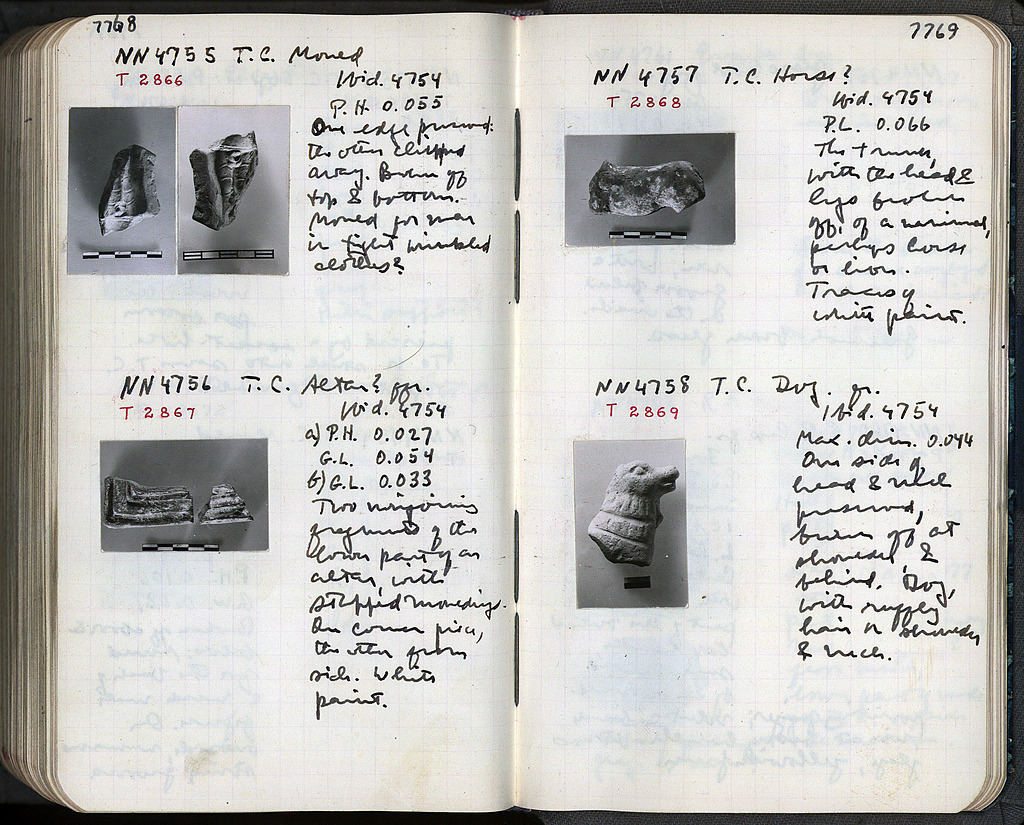 7768
NN 4755 T.C. Mould
T 2866
Ibid. 4754
P.H. 0.055
One edge preserved:
the other chipped
away. Broken off
top & bottom.
Mould for man
in tight wrinkled
clothes?
NN 4756 T.C. Altar? fgr.
T 2867
Ibid. 4754
a) P.H. 0.027
G.L. 0.054
b) G.L. 0.033
Two nonjoining
fragments of the
lower part of an
altar, with
stepped mouldings.
One corner piece,
the other from
side. White
paint.
7769
NN 4757 T.C. Horse?
T 2868
Ibid. 4754
P.L. 0.066
The trunk,
with the head &
legs broken
off, of an animal,
perhaps horse
or lion.
Traces of
white paint.
NN 4758 T.C. Dog. fr.
T 2869
Ibid. 4754
Max. dim. 0.044
One side of
head & neck
preserved,
broken off at
shoulder &
behind. Dog,
with ruffly
hair on shoulder
& neck.